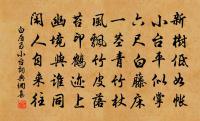 新樹低如帳
小台平似掌
六尺白藤床
一莖青竹杖
風飄竹皮落
苔印鶴迹上
幽境與誰同
閑人自來往
白居易小台詞典網集